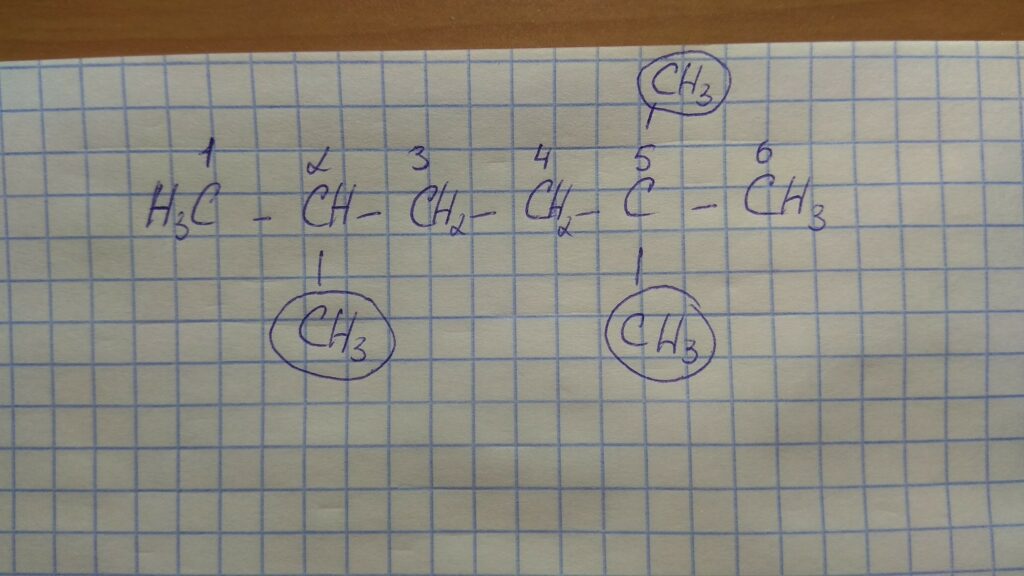 CH3
1 2 3 4 5 6
H3C - CH - CH2 - CH2 - C - CH3
CH3 CH3